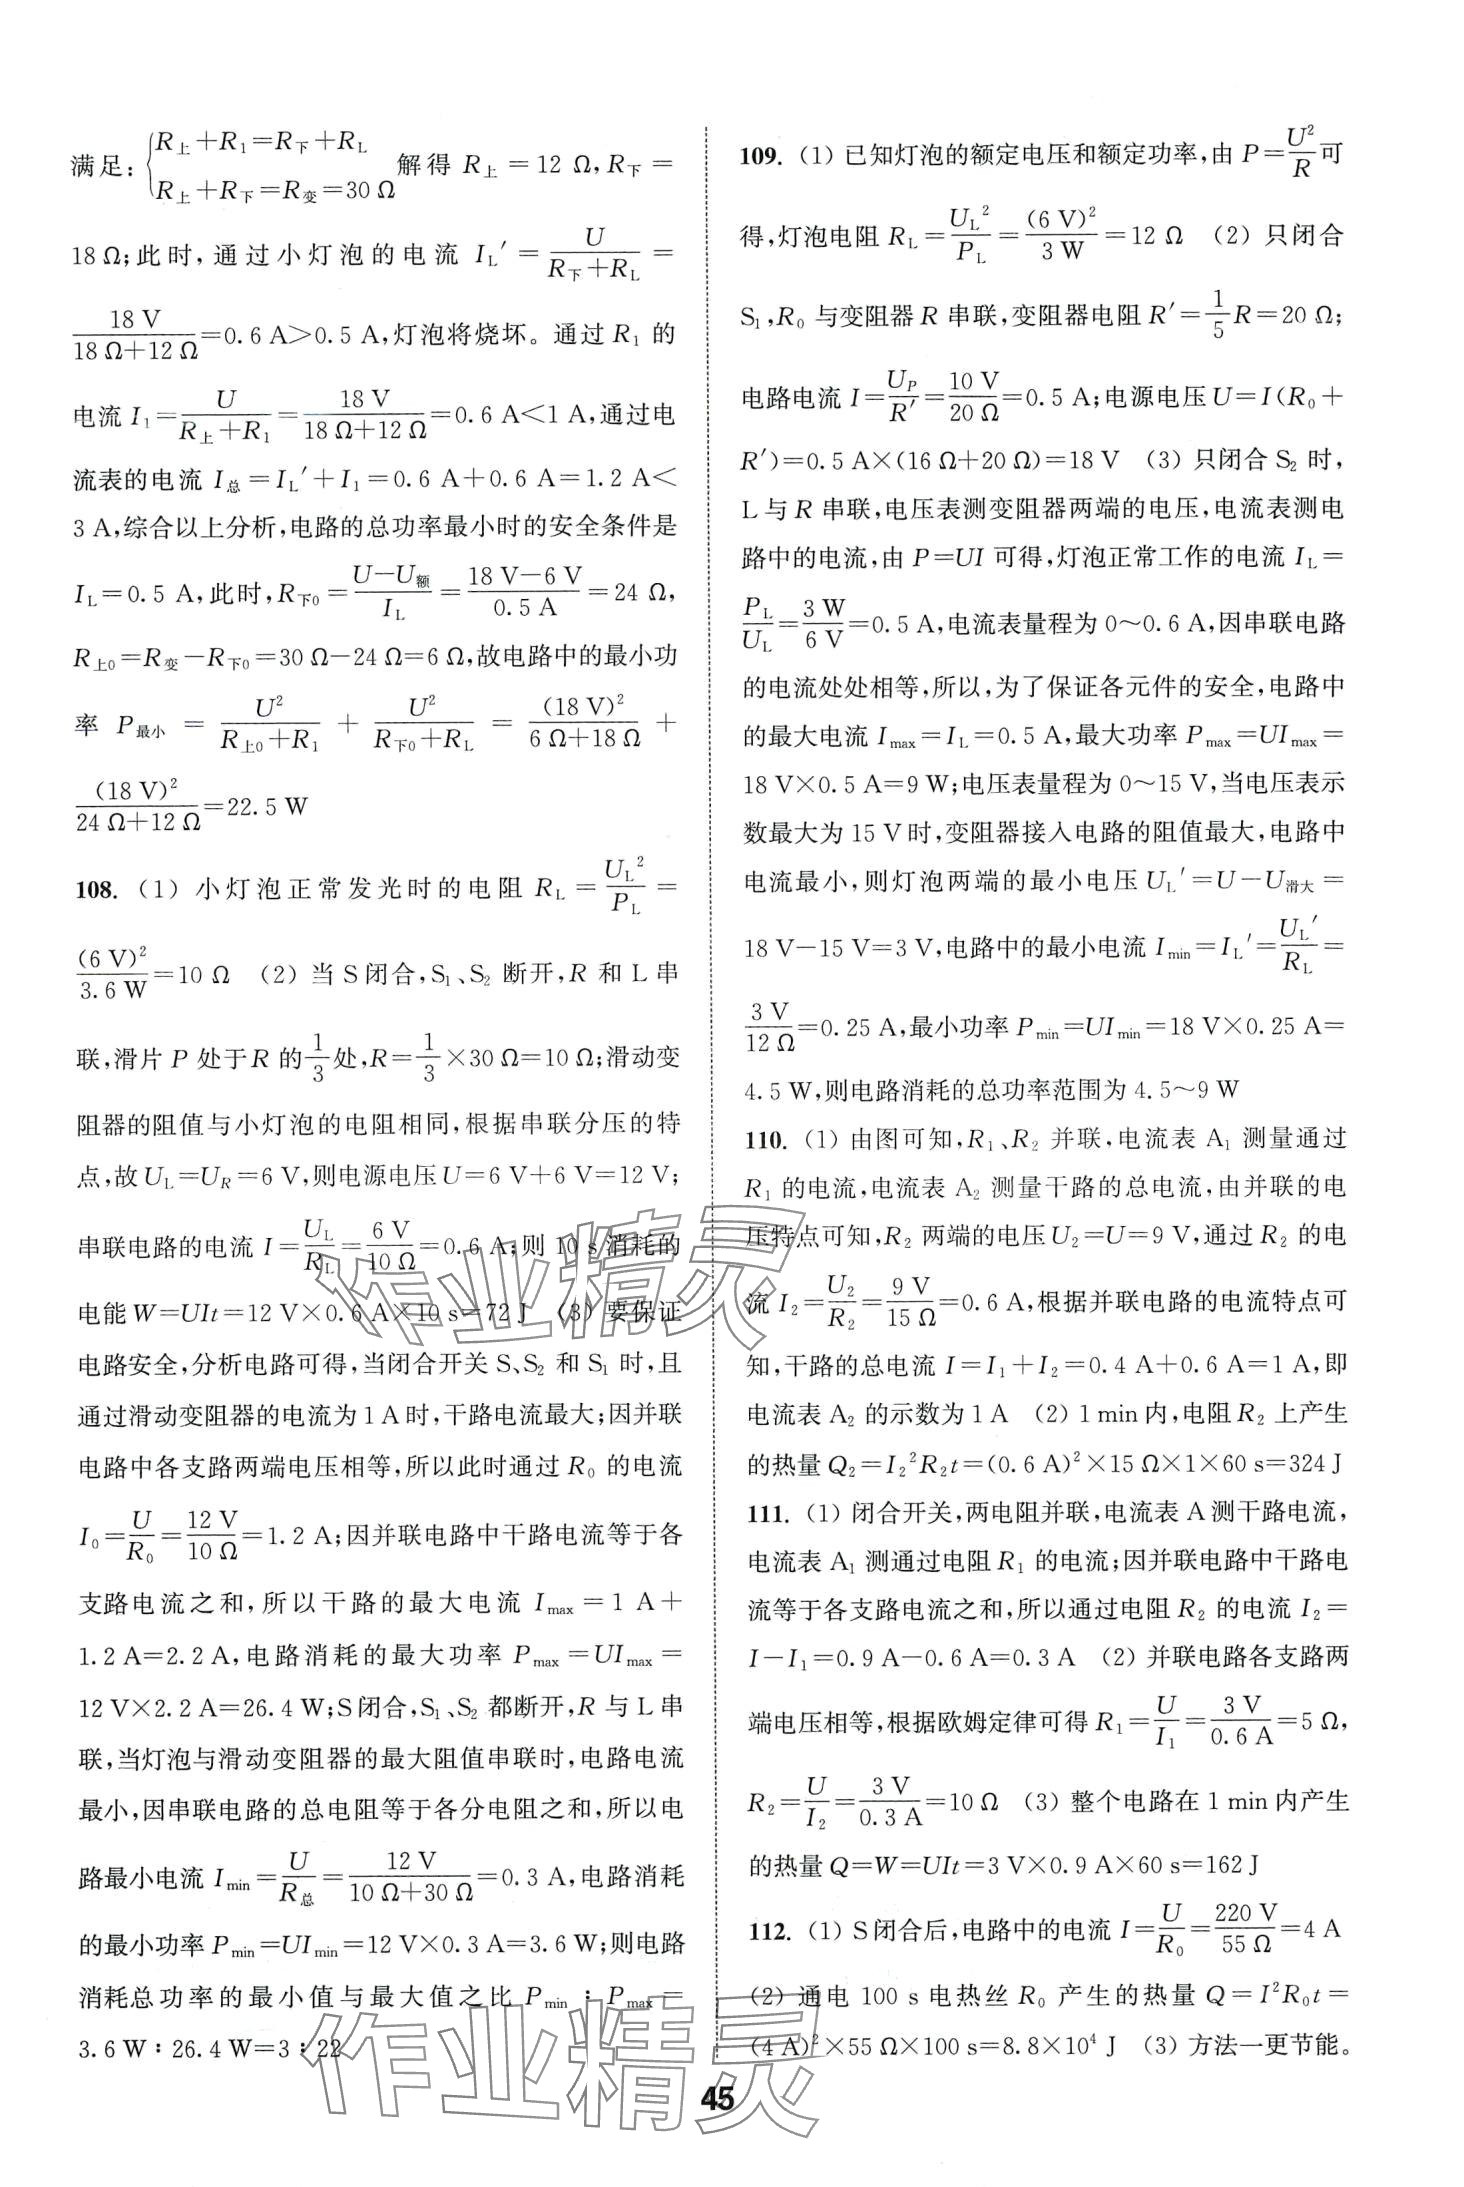 满足：{R上+R1=R下+RL
R上+R下=R变=30 Ω 解得 R上=12 Ω,R下=
18 Ω;此时,通过小灯泡的电流 IL′=U/(R下+RL)=
18 V/(18 Ω+12 Ω)=0.6 A>0.5 A,灯泡将烧坏。通过 R1 的
电流 I1=U/(R上+R1)=18 V/(18 Ω+12 Ω)=0.6 A<1 A,通过电
流表的电流 I总=IL′+I1=0.6 A+0.6 A=1.2 A<
3 A,综合以上分析,电路的总功率最小时的安全条件是
IL=0.5 A,此时,R下0=(U−U额)/IL=(18 V−6 V)/0.5 A=24 Ω,
R上0=R变−R下0=30 Ω−24 Ω=6 Ω,故电路中的最小功
率 P最小=U²/(R上0+R1)+U²/(R下0+RL)=(18 V)²/(6 Ω+18 Ω)+
(18 V)²/(24 Ω+12 Ω)=22.5 W
108. (1) 小灯泡正常发光时的电阻 RL=UL²/PL=
(6 V)²/3.6 W=10 Ω (2) 当 S 闭合,S1、S2 断开,R 和 L 串
联,滑片 P 处于 R 的1/3处,R=1/3×30 Ω=10 Ω;滑动变
阻器的阻值与小灯泡的电阻相同,根据串联分压的特
点,故 UL=UR=6 V,则电源电压 U=6 V+6 V=12 V;
串联电路的电流 I=UL/RL=6 V/10 Ω=0.6 A;则 10 s 消耗的
电能 W=UIt=12 V×0.6 A×10 s=72 J (3) 要保证
电路安全,分析电路可得,当闭合开关 S、S2 和 S1 时,且
通过滑动变阻器的电流为 1 A 时,干路电流最大;因并联
电路中各支路两端电压相等,所以此时通过 R0 的电流
I0=U/R0=12 V/10 Ω=1.2 A;因并联电路中干路电流等于各
支路电流之和,所以干路的最大电流 Imax=1 A+
1.2 A=2.2 A,电路消耗的最大功率 Pmax=UImax=
12 V×2.2 A=26.4 W;S 闭合,S1、S2 都断开,R 与 L 串
联,当灯泡与滑动变阻器的最大阻值串联时,电路电流
最小,因串联电路的总电阻等于各分电阻之和,所以电
路最小电流 Imin=U/R总=12 V/(10 Ω+30 Ω)=0.3 A,电路消耗
的最小功率 Pmin=UImin=12 V×0.3 A=3.6 W;则电路
消耗总功率的最小值与最大值之比 Pmin∶Pmax=
3.6 W∶26.4 W=3∶22
109. (1) 已知灯泡的额定电压和额定功率,由 P=U²/R可
得,灯泡电阻 RL=UL²/PL=(6 V)²/3 W=12 Ω (2) 只闭合
S1,R0 与变阻器 R 串联,变阻器电阻 R′=1/5R=20 Ω;
电路电流 I=UP/R′=10 V/20 Ω=0.5 A;电源电压 U=I(R0+
R′)=0.5 A×(16 Ω+20 Ω)=18 V (3) 只闭合 S2 时,
L 与 R 串联,电压表测变阻器两端的电压,电流表测电
路中的电流,由 P=UI 可得,灯泡正常工作的电流 IL=
PL/UL=3 W/6 V=0.5 A,电流表量程为 0～0.6 A,因串联电路
的电流处处相等,所以,为了保证各元件的安全,电路中
的最大电流 Imax=IL=0.5 A,最大功率 Pmax=UImax=
18 V×0.5 A=9 W;电压表量程为 0～15 V,当电压表示
数最大为 15 V 时,变阻器接入电路的阻值最大,电路中
电流最小,则灯泡两端的最小电压 UL′=U−U滑大=
18 V−15 V=3 V,电路中的最小电流 Imin=IL′=UL′/RL=
3 V/12 Ω=0.25 A,最小功率 Pmin=UImin=18 V×0.25 A=
4.5 W,则电路消耗的总功率范围为 4.5～9 W
110. (1) 由图可知,R1、R2 并联,电流表 A1 测量通过
R1 的电流,电流表 A2 测量干路的总电流,由并联的电
压特点可知,R2 两端的电压 U2=U=9 V,通过 R2 的电
流 I2=U2/R2=9 V/15 Ω=0.6 A,根据并联电路的电流特点可
知,干路的总电流 I=I1+I2=0.4 A+0.6 A=1 A,即
电流表 A2 的示数为 1 A (2) 1 min 内,电阻 R2 上产生
的热量 Q2=I2²R2t=(0.6 A)²×15 Ω×1×60 s=324 J
111. (1) 闭合开关,两电阻并联,电流表 A 测干路电流,
电流表 A1 测通过电阻 R1 的电流;因并联电路中干路电
流等于各支路电流之和,所以通过电阻 R2 的电流 I2=
I−I1=0.9 A−0.6 A=0.3 A (2) 并联电路各支路两
端电压相等,根据欧姆定律可得 R1=U/I1=3 V/0.6 A=5 Ω,
R2=U/I2=3 V/0.3 A=10 Ω (3) 整个电路在 1 min 内产生
的热量 Q=W=UIt=3 V×0.9 A×60 s=162 J
112. (1) S 闭合后,电路中的电流 I=U/R0=220 V/55 Ω=4 A
(2) 通电 100 s 电热丝 R0 产生的热量 Q=I²R0t=
(4 A)²×55 Ω×100 s=8.8×10⁴ J (3) 方法一更节能。
作业精灵
作业精灵
45